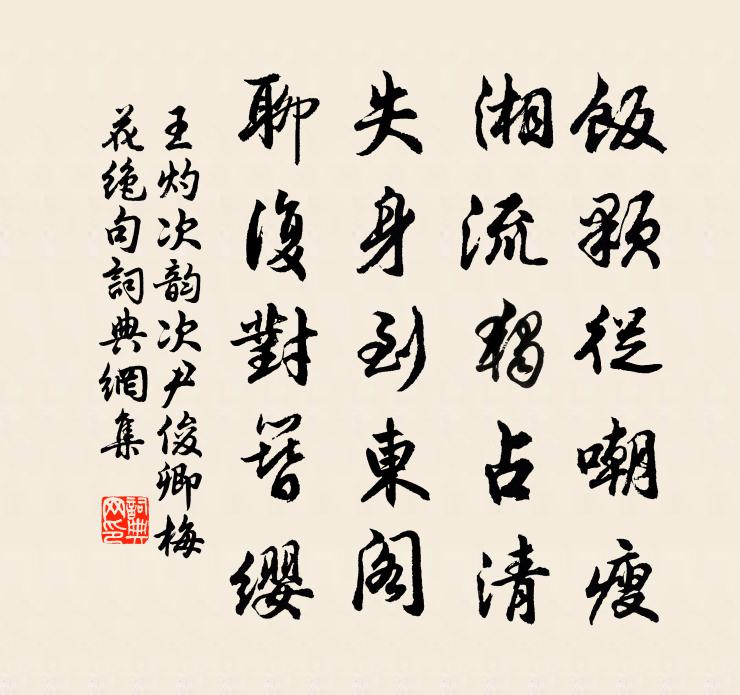 飯顆從嘲瘦
湘流獨占清
失身到東閣
聊復對簪纓
王灼次韵次尹俊卿梅
花絶句詞典網集
詞典
网印